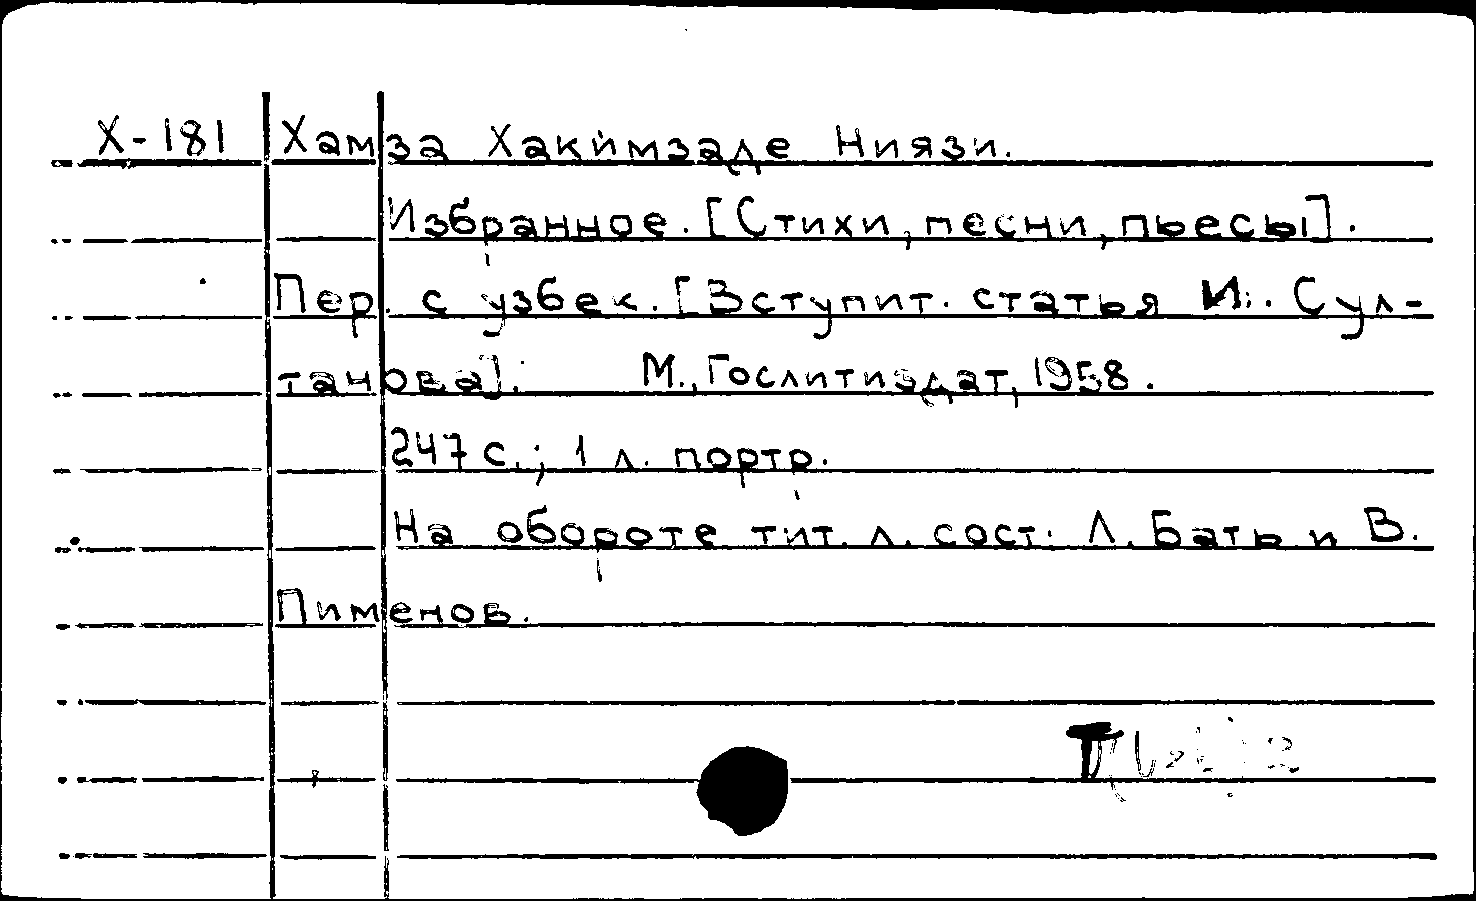 Х-181 Хамза Хакимзаде Ниязи.
Избранное. [Стихи, песни, пьесы].
Пер. с узбек. [Вступит. статья И. Сул-
танова]. М., Гослитиздат, 1958.
247 с.; 1 л. портр.
На обороте тит. л. сост. Л. Бать и В.
Пименов.